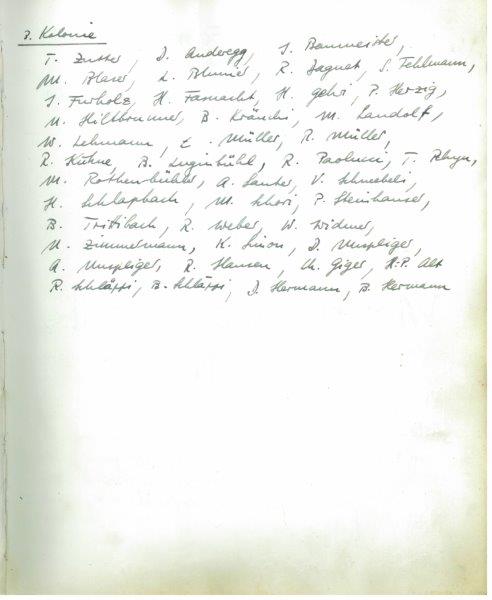 3. Kolonie
T. Zutter, D. Anderegg, S. Baumeister,
M. Blaser, L. Blumer, R. Jaquet, S. Fehlmann,
S. Furholz, H. Fasnacht, H. Gehri, P. Herzig,
U. Hiltbrunner, B. Kränchi, M. Landolf,
W. Lehmann, E. Müller, R. Müller,
R. Kühne, B. Luginbühl, R. Paolucci, T.
M. Rothenbühler, A. Sauter, V. Schneebeli,
H. Schlapbach, M. Schori, P. Steinhauser,
B. Trittibach, R. Weber, W. Widmer,
U. Zimmermann, K. Simon, D. Umspliger,
A. Umspliger, R. Hansen, Ch. Giger, H.-P. Alt
R. Schläppi, B. Schläppi, D. Hermann, B. Hermann